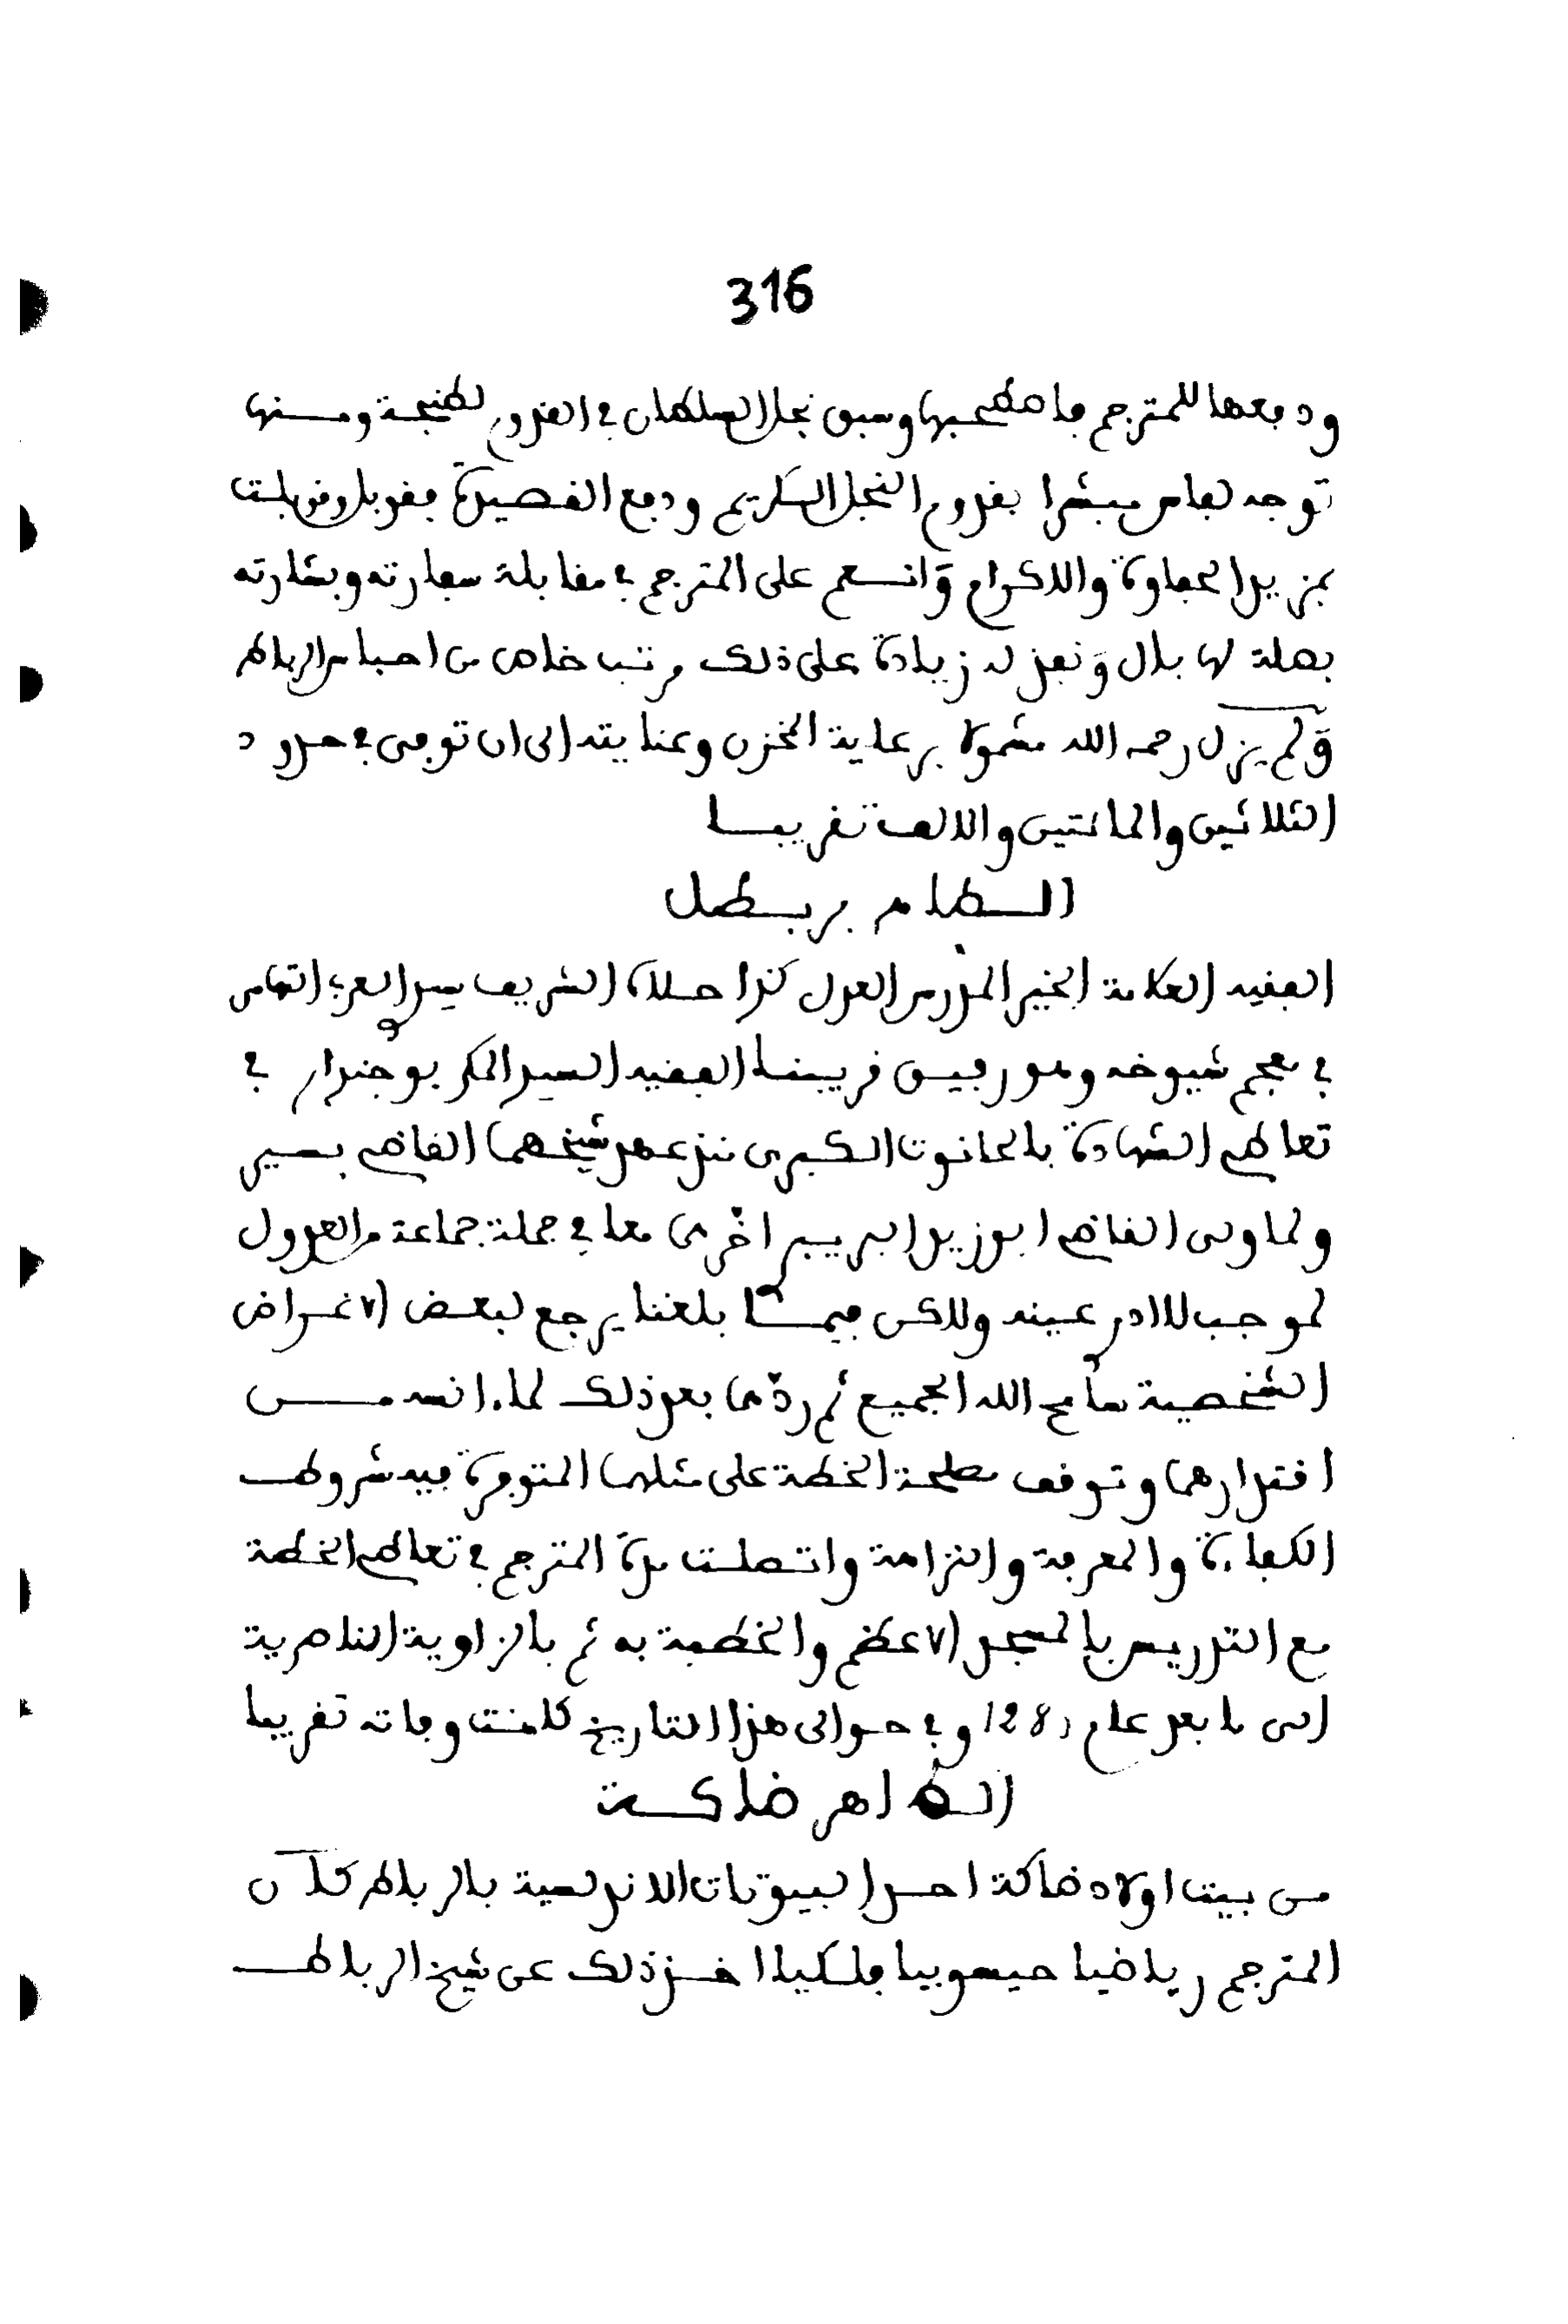 316
ودفعها للمترجم فاصطحبها وسبق نجل السلطان في القدوم لطنجة ومنها
توجه لفاس مبشرا بقدوم النجل الكريم ودفع القصيدة فقوبل وقوبلت
بمزيد الحفاوة والاكرام وانعم على المترجم في مقابلة سفارته وبشارته
بصلة لها بال ونفذ له زيادة على ذلك مرتب خاص من احباس الرباط
ولم يزل رحمه الله مشمولا برعاية المخزن وعنايته الى ان توفى في حدود
الثلاثين والمائتين والالف تقريبا
الطاهر بربطل
الفقيه العلامة الخير المدرس العدل كذا حلاه الشريف سيدي العربي التهامي
في معجم شيوخه وهو رفيق قريبنا الفقيه السيد المكي بوجندار في
تعاطي الشهادة بالحانوت الكبرى منذ عهد شيخهما القاضي بسير
ولما ولى القاضي ابو زيد البريبري اخرهما معا في جملة جماعة من العدول
لموجب للاادر عينه ولاكن فيما بلغنا يرجع لبعض الاغراض
الشخصية سامح الله الجميع ثم ردهما بعد ذلك لما ءانسه من
اقتدارهما وتوقف مصلحة الخطة على مثلهما المتوفرة فيه شروط
الكفاءة والمعرفة والنزاهة واتصلت مدة المترجم في تعاطي الخطة
مع التدريس بالمسجد الاعظم والخطبة به ثم بالزاوية الناصرية
الى ما بعد عام 128 وفي حوالى هذا التاريخ كانت وفاته تقريبا
الطاهر ضاكة
من بيت اولاد ضاكة احد البيوتات الاندلسية بالرباط كان
المترجم رياضيا حيسوبيا فلكيا اخذ ذلك عن شيخ الرباط